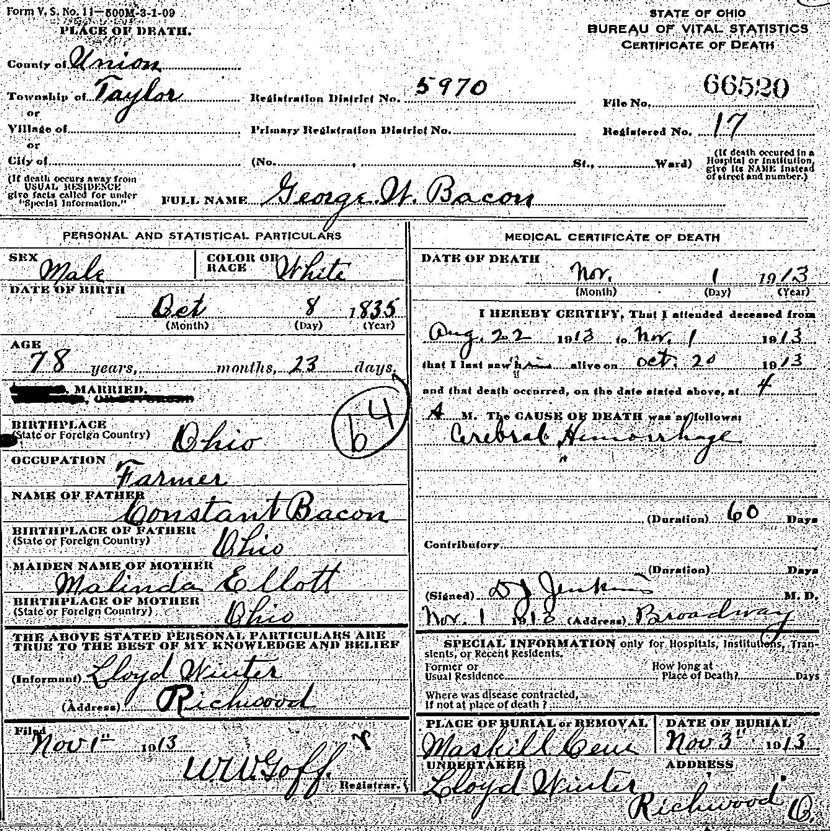 Form V. S. No. 11—500M-3-1-09
PLACE OF DEATH.
STATE OF OHIO
BUREAU OF VITAL STATISTICS
CERTIFICATE OF DEATH
County of Union
Township of Taylor
Registration District No. 5970
File No. 66520
or
Village of
Primary Registration District No.
Registered No. 17
or
City of
(No. , St., Ward)
(If death occured in a Hospital or Institution, give its NAME instead of street and number.)
(If death occurs away from USUAL RESIDENCE give facts called for under "Special Information.")
FULL NAME George W. Bacon
PERSONAL AND STATISTICAL PARTICULARS
SEX Male
COLOR OR RACE White
DATE OF BIRTH
Oct 8 1835
(Month) (Day) (Year)
AGE
78 years, months, 23 days,
MARRIED,
64
BIRTHPLACE
(State or Foreign Country) Ohio
OCCUPATION
Farmer
NAME OF FATHER
Constant Bacon
BIRTHPLACE OF FATHER
(State or Foreign Country) Ohio
MAIDEN NAME OF MOTHER
Malinda Ellott
BIRTHPLACE OF MOTHER
(State or Foreign Country) Ohio
THE ABOVE STATED PERSONAL PARTICULARS ARE
TRUE TO THE BEST OF MY KNOWLEDGE AND BELIEF
(Informant) Lloyd Winter
(Address) Richwood
Filed
Nov 1st 1913
W W Goff
Registrar.
MEDICAL CERTIFICATE OF DEATH
DATE OF DEATH
Nov. 1 1913
(Month) (Day) (Year)
I HEREBY CERTIFY, That I attended deceased from
Aug. 22 1913 to Nov. 1 1913
that I last saw him alive on Oct. 20 1913
and that death occurred, on the date stated above, at 4
A M. The CAUSE OF DEATH was as follows:
Cerebral Hemorrhage
(Duration) 60 Days
Contributory
(Duration) Days
(Signed) D J Jenkins M. D.
Nov. 1 1913 (Address) Broadway
SPECIAL INFORMATION only for Hospitals, Institutions, Tran-
sients, or Recent Residents.
Former or
Usual Residence
How long at
Place of Death? Days
Where was disease contracted,
If not at place of death?
PLACE OF BURIAL or REMOVAL
Maskill Cem
DATE OF BURIAL
Nov 3rd 1913
UNDERTAKER
Lloyd Winter
ADDRESS
Richwood O.